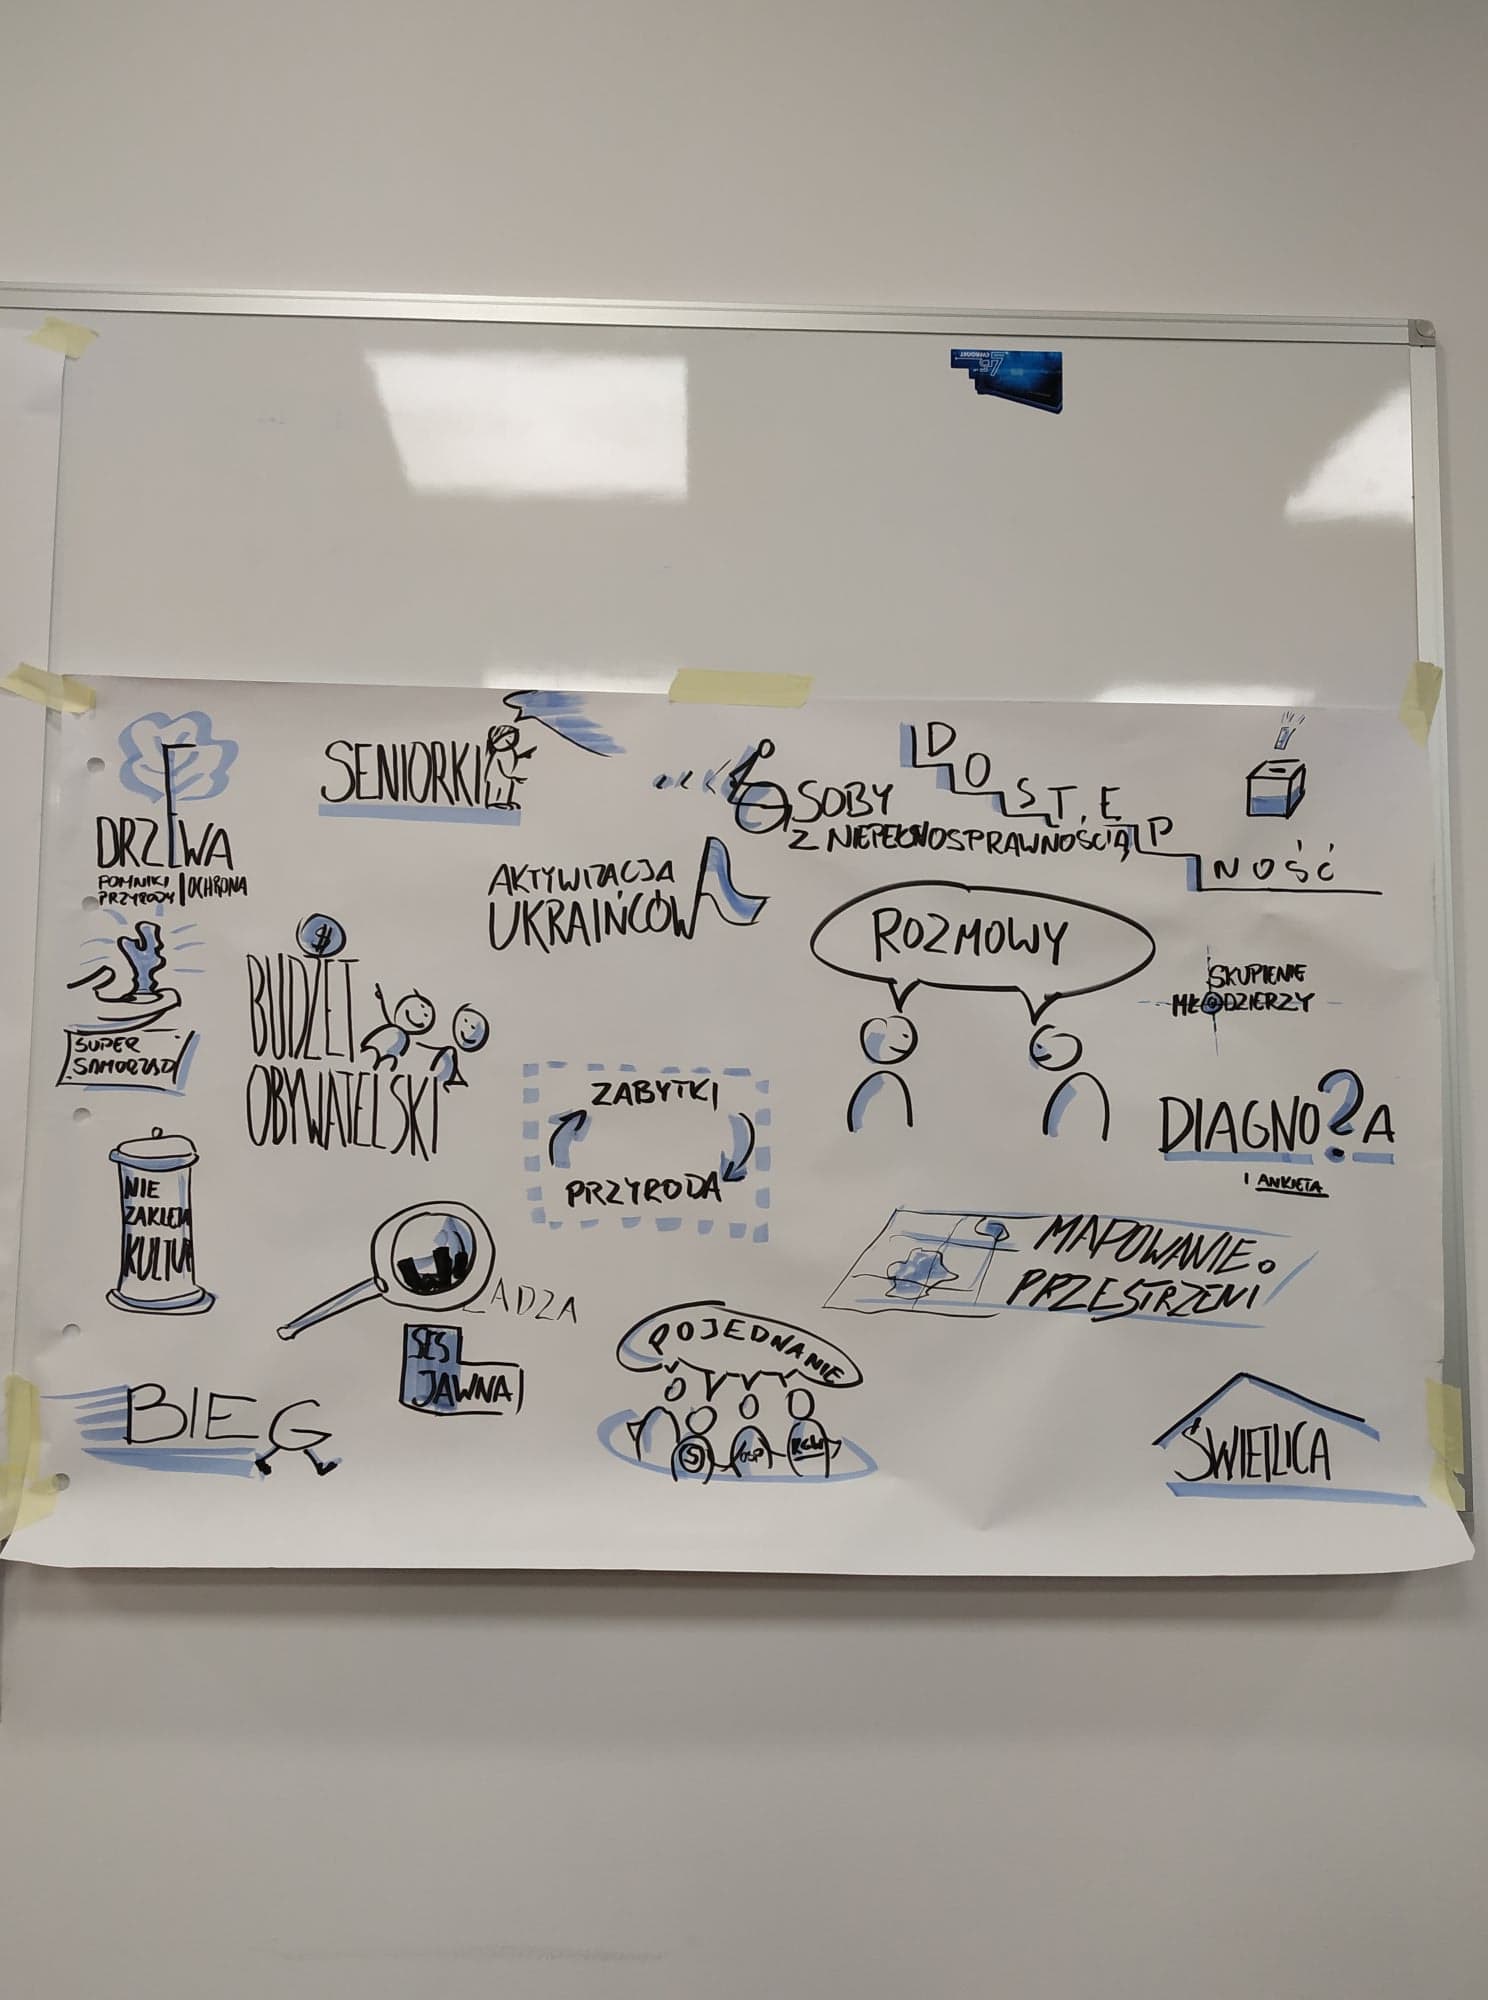 DRZEWA
POMNIKI PRZYRODY | OCHRONA
SENIORKI
OSOBY
Z NIEPEŁNOSPRAWNOŚCIĄ
DOSTĘPNOŚĆ
AKTYWIZACJA
UKRAIŃCÓW
ROZMOWY
SKUPIENIE
MŁODZIERZY
SUPER
SAMORZĄD
$
BUDŻET
OBYWATELSKI
ZABYTKI
PRZYRODA
DIAGNOZA
I ANKIETA
NIE
ZAKLEJA
KULTUR
ADZA
SES
JAWNA
MAPOWANIE
PRZESTRZENI
POJEDNANIE
S
OSP
KGW
BIEG
ŚWIETLICA